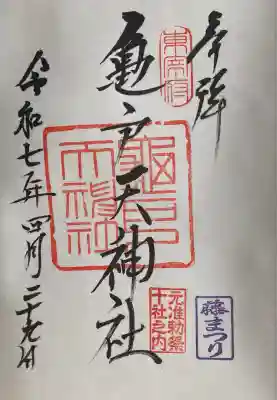 奉拝
東宰府
亀戸天神社
亀戸天神社
元准勅祭
十社之内
藤まつり
令和七年四月二十九日